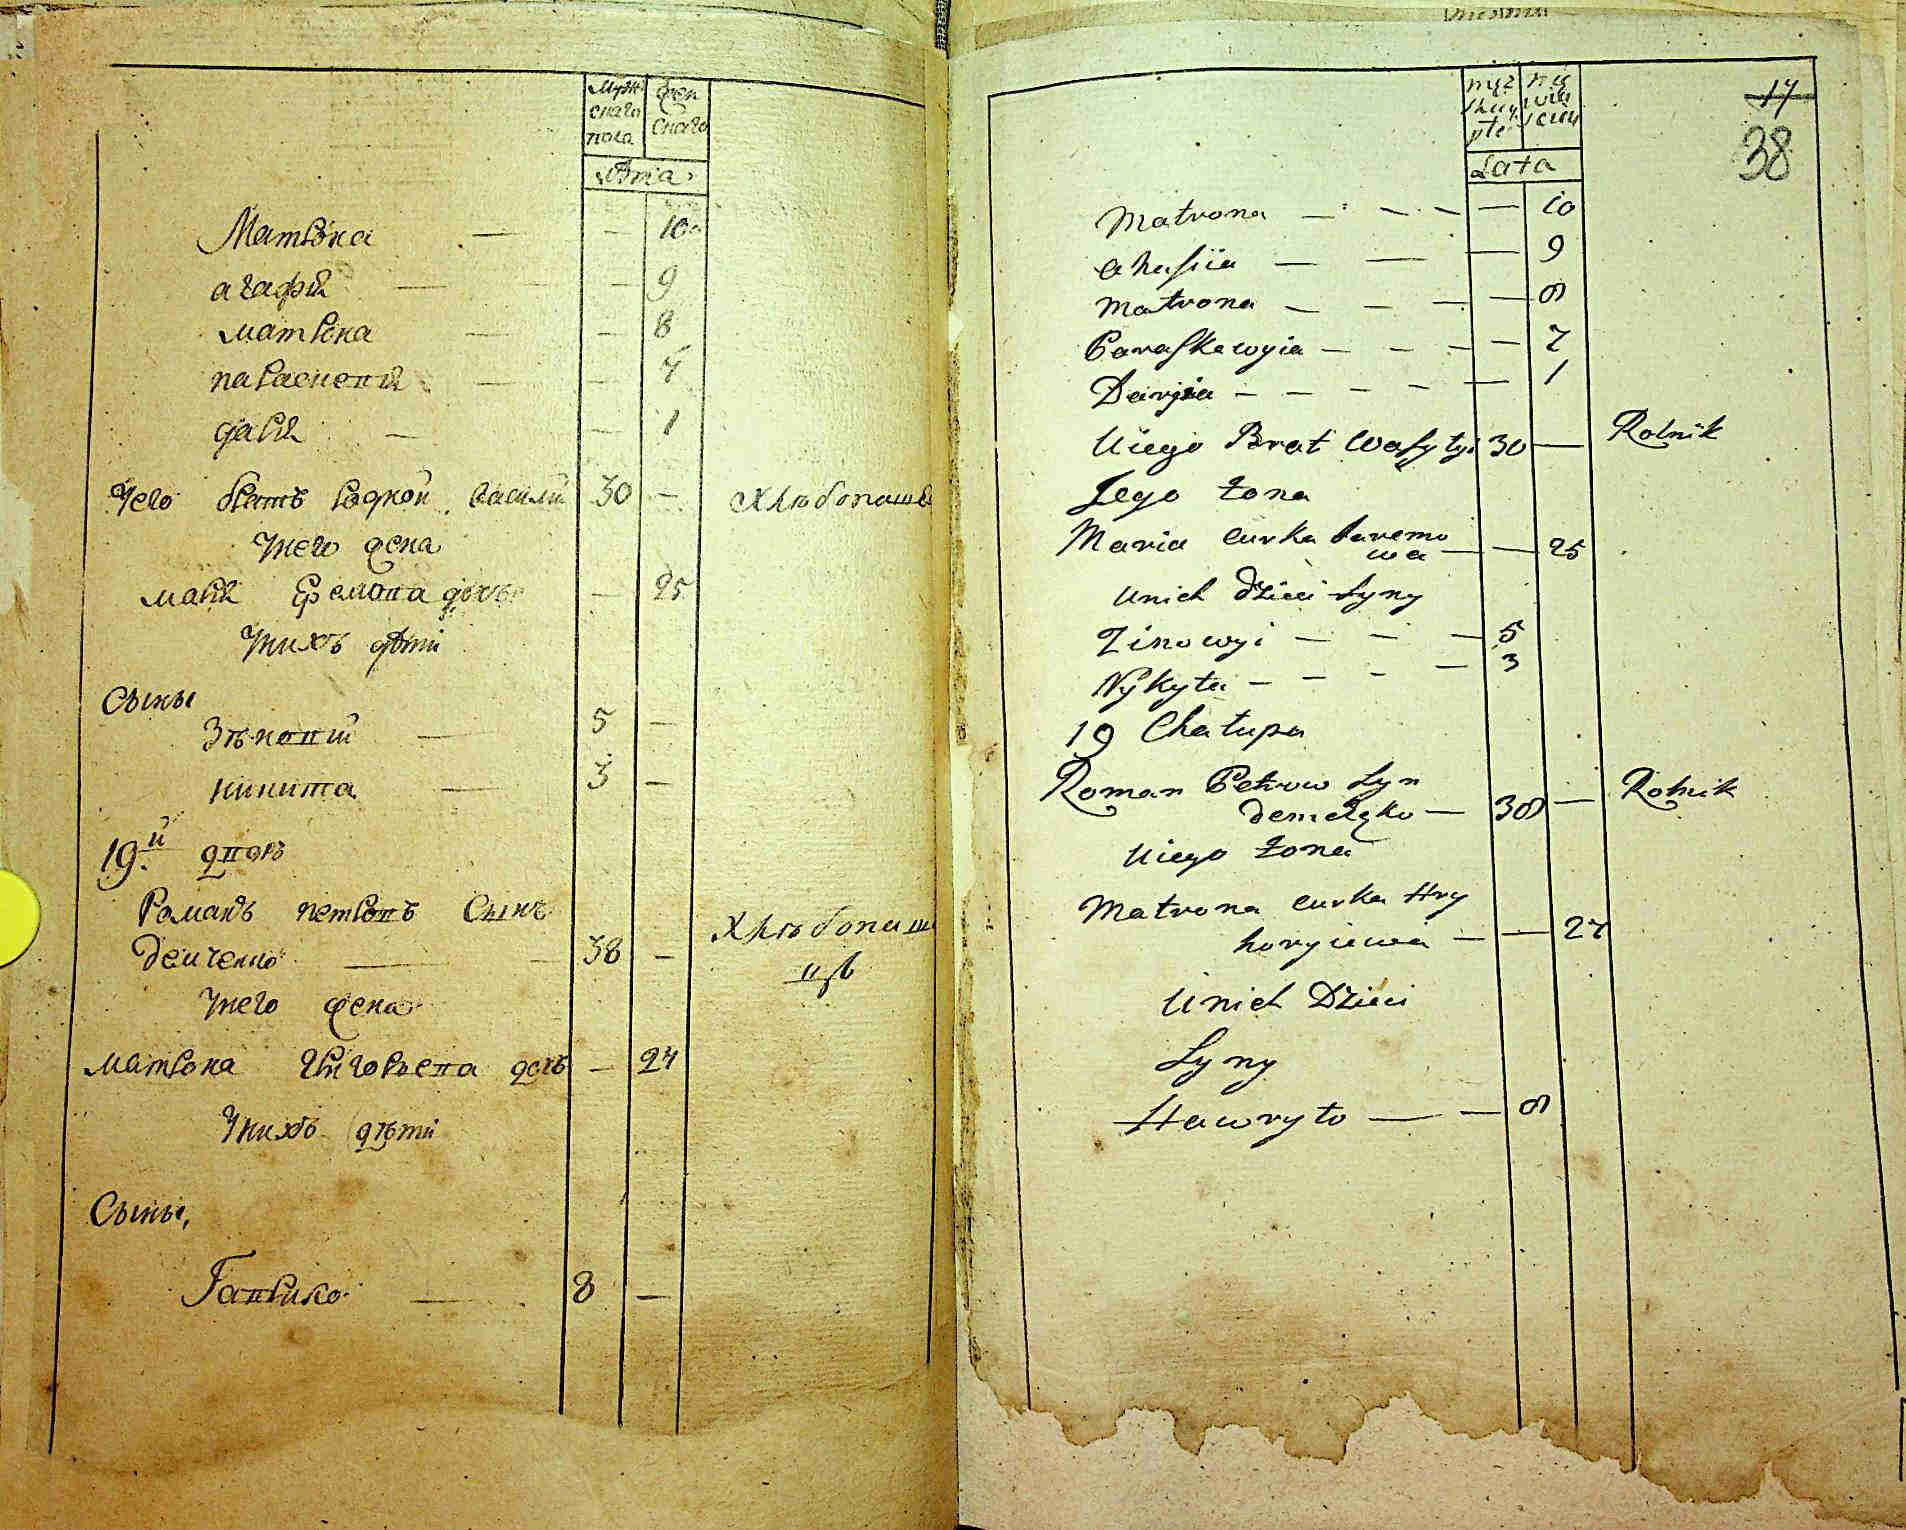 Мужескаго пола
Женскаго
Лѣта
Матрона — — 10
агафия — — 9
матрона — — 8
параскевия — — 7
дария — — 1
Унего братъ родной василий 30 — Хлѣбопаше
Унего жена
мария Еремова дочь — 25
Унихъ дѣти
Сыны
Зѣновий — 5 —
никита — 3 —
19й дворъ
Романъ петровъ Сынъ
демченко — 38 — Хлѣбопаш
Унего жена
матрона григорьева дочь — 27
Унихъ дѣти
Сыны,
Гаврило — 8 —
17
38
Lata
Matrona — — — — 10
ahafiia — — — 9
Matrona — — — — 8
Paraskewyia — — — — 7
Daryia — — — — 1
Uiego Brat Wasylyi 30 — Rolnik
Jego żona
Maria curka Jaremo
wa — — 25
Unich dzieci syny
Zinowyi — — — 5
Nykyta — — — — 3
19 Chałupa
Roman Petrow syn
demczenko — 38 — Rolnik
Uiego żona
Matrona curka Hry
horyiewa — — 27
Unich Dzieci
Syny
Hawryło — — 8